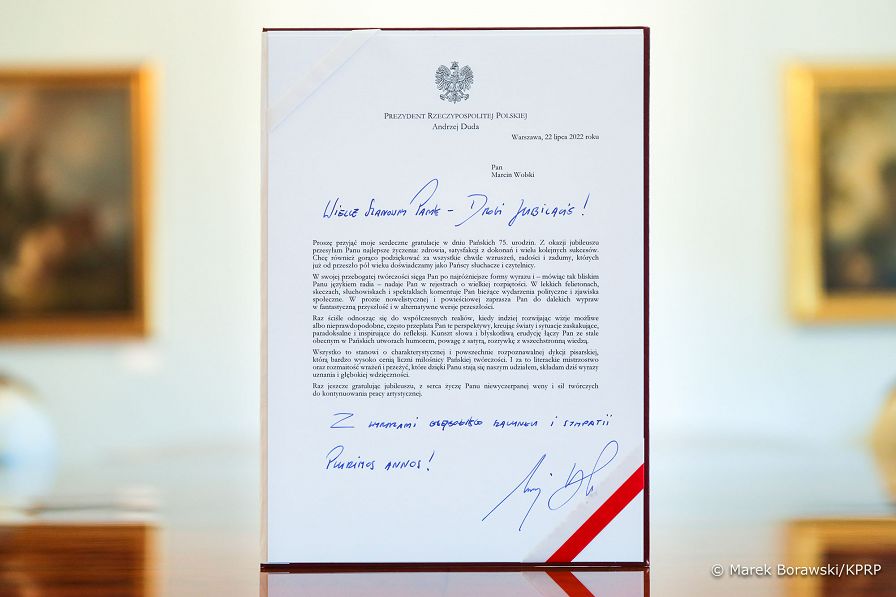 PREZYDENT RZECZYPOSPOLITEJ POLSKIEJ
Andrzej Duda
Warszawa, 22 lipca 2022 roku
Pan
Marcin Wolski
Wielce Szanowny Panie – Drogi Jubilacie!
Proszę przyjąć moje serdeczne gratulacje w dniu Pańskich 75. urodzin. Z okazji jubileuszu
przesyłam Panu najlepsze życzenia: zdrowia, satysfakcji z dokonań i wielu kolejnych sukcesów.
Chcę również gorąco podziękować za wszystkie chwile wzruszeń, radości i zadumy, których
już od przeszło pół wieku doświadczamy jako Pańscy słuchacze i czytelnicy.
W swojej przebogatej twórczości sięga Pan po najróżniejsze formy wyrazu i – mówiąc tak bliskim
Panu językiem radia – nadaje Pan w rejestrach o wielkiej rozpiętości. W lekkich felietonach,
skeczach, słuchowiskach i spektaklach komentuje Pan bieżące wydarzenia polityczne i zjawiska
społeczne. W prozie nowelistycznej i powieściowej zaprasza Pan do dalekich wypraw
w fantastyczną przyszłość i w alternatywne wersje przeszłości.
Raz ściśle odnosząc się do współczesnych realiów, kiedy indziej rozwijając wizje możliwe
albo nieprawdopodobne, często przeplata Pan te perspektywy, kreując światy i sytuacje zaskakujące,
paradoksalne i inspirujące do refleksji. Kunszt słowa i błyskotliwą erudycję łączy Pan ze stale
obecnym w Pańskich utworach humorem, powagę z satyrą, rozrywkę z wszechstronną wiedzą.
Wszystko to stanowi o charakterystycznej i powszechnie rozpoznawalnej dykcji pisarskiej,
którą bardzo wysoko cenią liczni miłośnicy Pańskiej twórczości. I za to literackie mistrzostwo
oraz rozmaitość wrażeń i przeżyć, które dzięki Panu stają się naszym udziałem, składam dziś wyrazy
uznania i głębokiej wdzięczności.
Raz jeszcze gratulując jubileuszu, z serca życzę Panu niewyczerpanej weny i sił twórczych
do kontynuowania pracy artystycznej.
Z wyrazami głębokiego szacunku i sympatii
Plurimos annos!
© Marek Borawski/KPRP